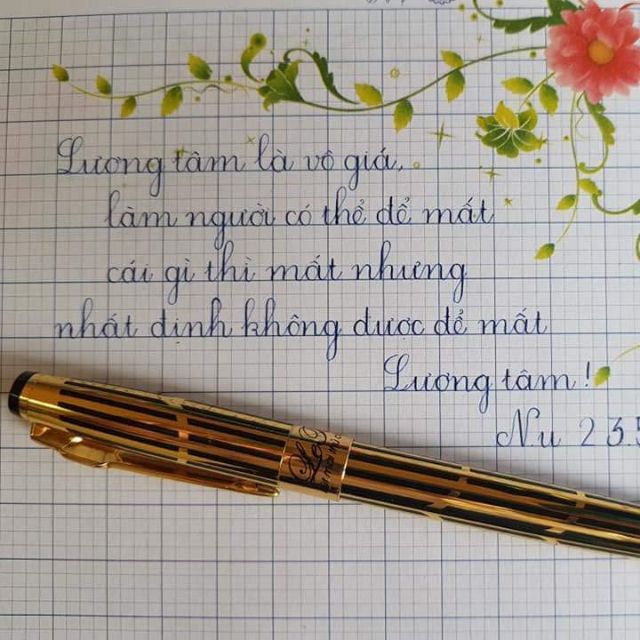 Lương tâm là vô giá,
làm người có thể để mất
cái gì thì mất nhưng
nhất định không được để mất
Lương tâm!
Nu 235